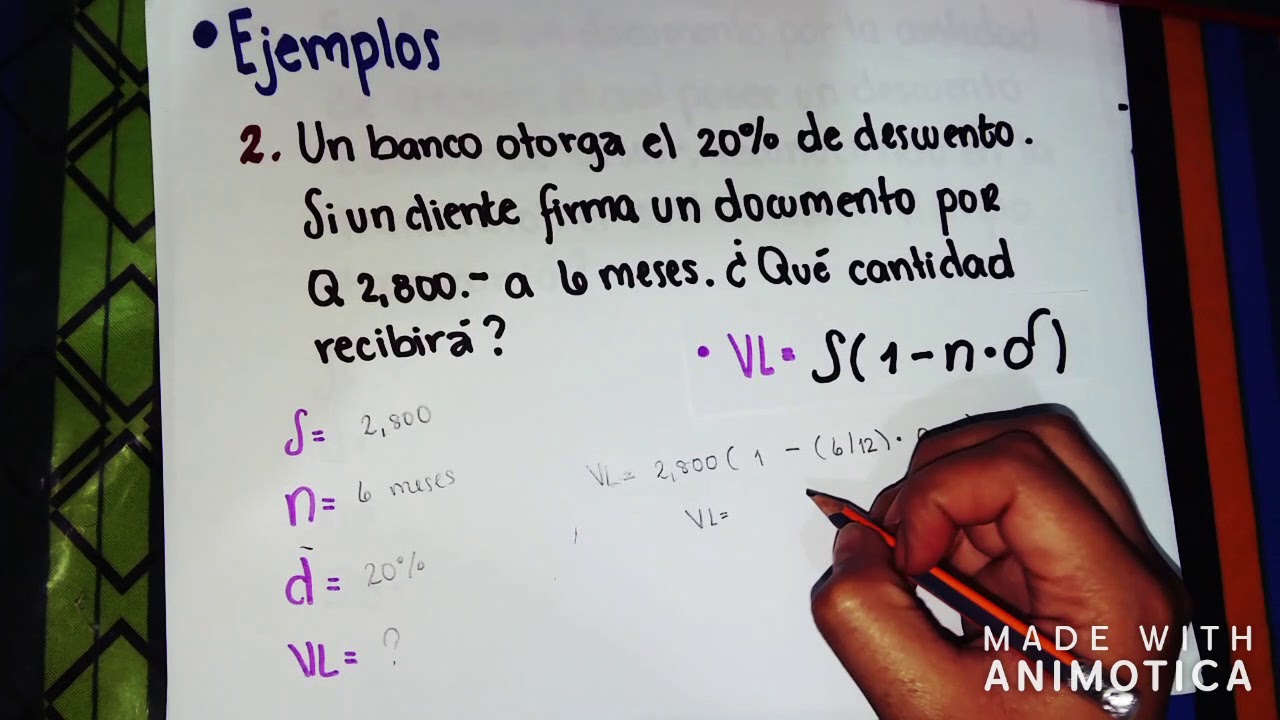 • Ejemplos
2. Un banco otorga el 20% de descuento.
Si un cliente firma un documento por
Q 2,800.- a 6 meses. ¿Qué cantidad
recibirá?
• VL= S(1-n·d)
S= 2,800
n= 6 meses
d= 20%
VL= ?
VL= 2,800( 1 - (6/12)·
VL=
MADE WITH
ANIMOTICA